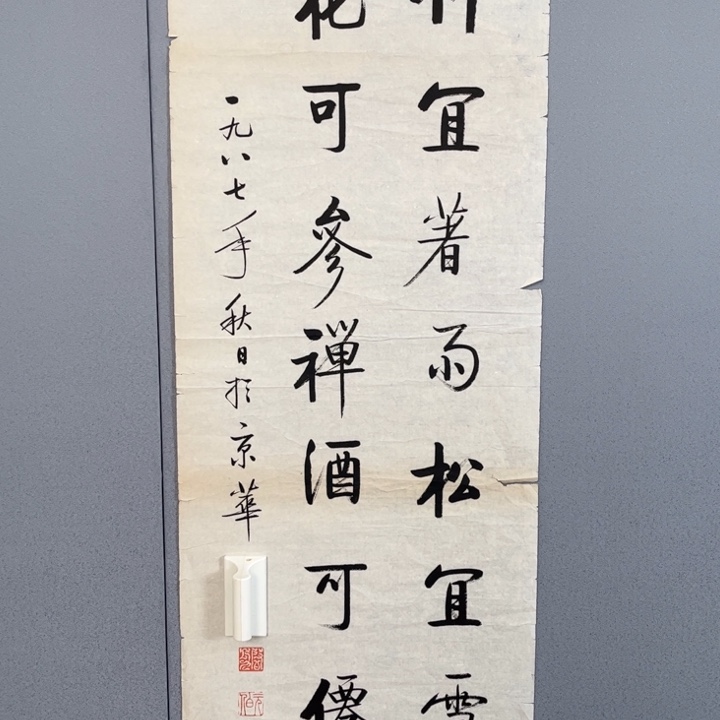 竹宜著雨松宜雪
花可參禪酒可僊
一九八七年秋日於京華